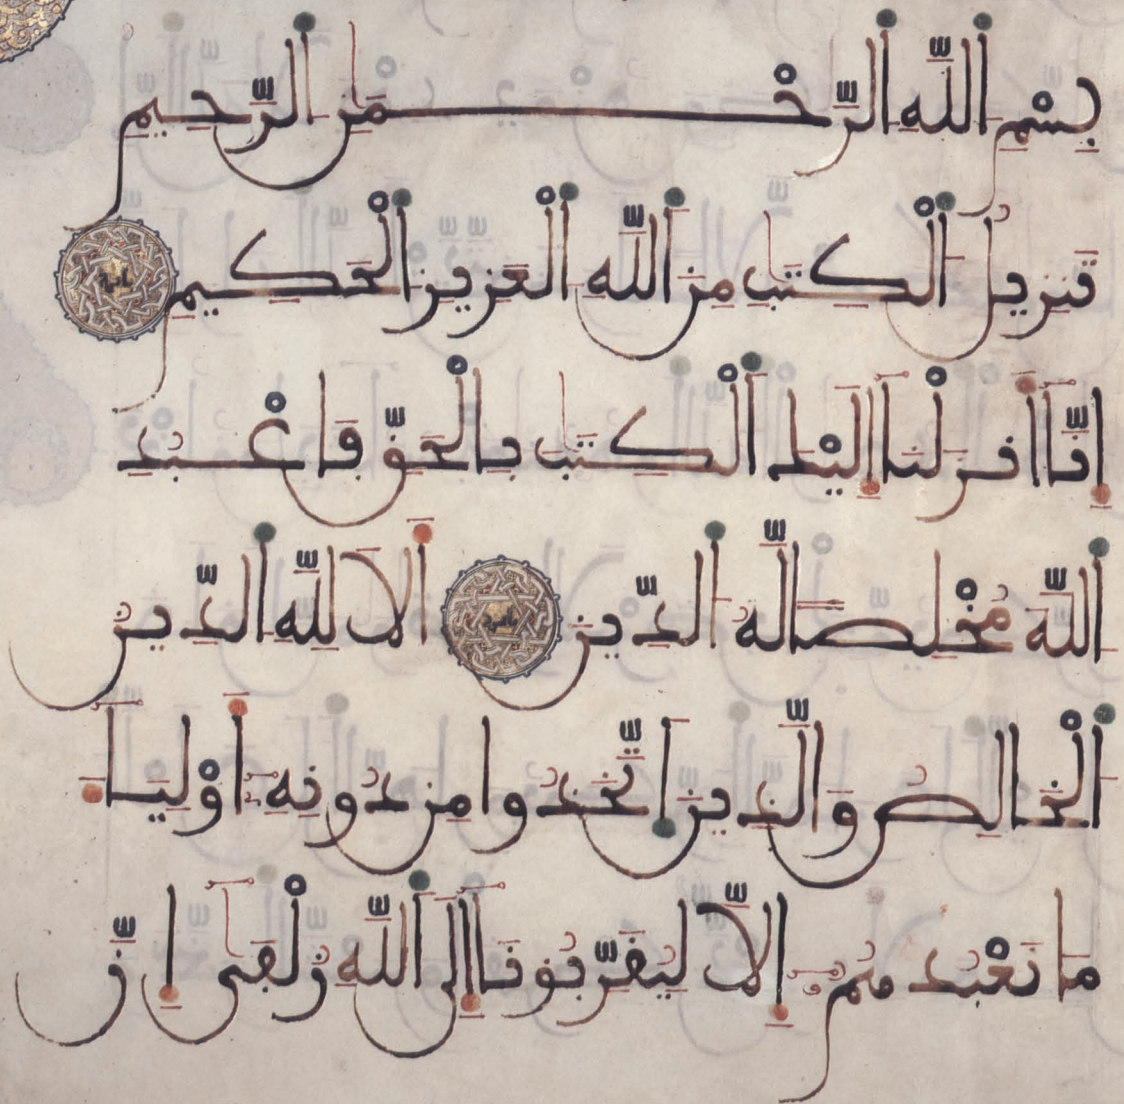 بِسْمِ اللَّهِ الرَّحْمَٰنِ الرَّحِيمِ
تَنزِيلُ الْكِتَٰبِ مِنَ اللَّهِ الْعَزِيزِ الْحَكِيمِ
إِنَّا أَنزَلْنَا إِلَيْكَ الْكِتَٰبَ بِالْحَقِّ فَاعْبُدِ
اللَّهَ مُخْلِصًا لَهُ الدِّينَ أَلَا لِلَّهِ الدِّينُ
الْخَالِصُ وَالَّذِينَ اتَّخَذُوا مِن دُونِهِ أَوْلِيَاءَ
مَا نَعْبُدُهُمُ إِلَّا لِيُقَرِّبُونَا إِلَى اللَّهِ زُلْفَىٰ إِنَّ